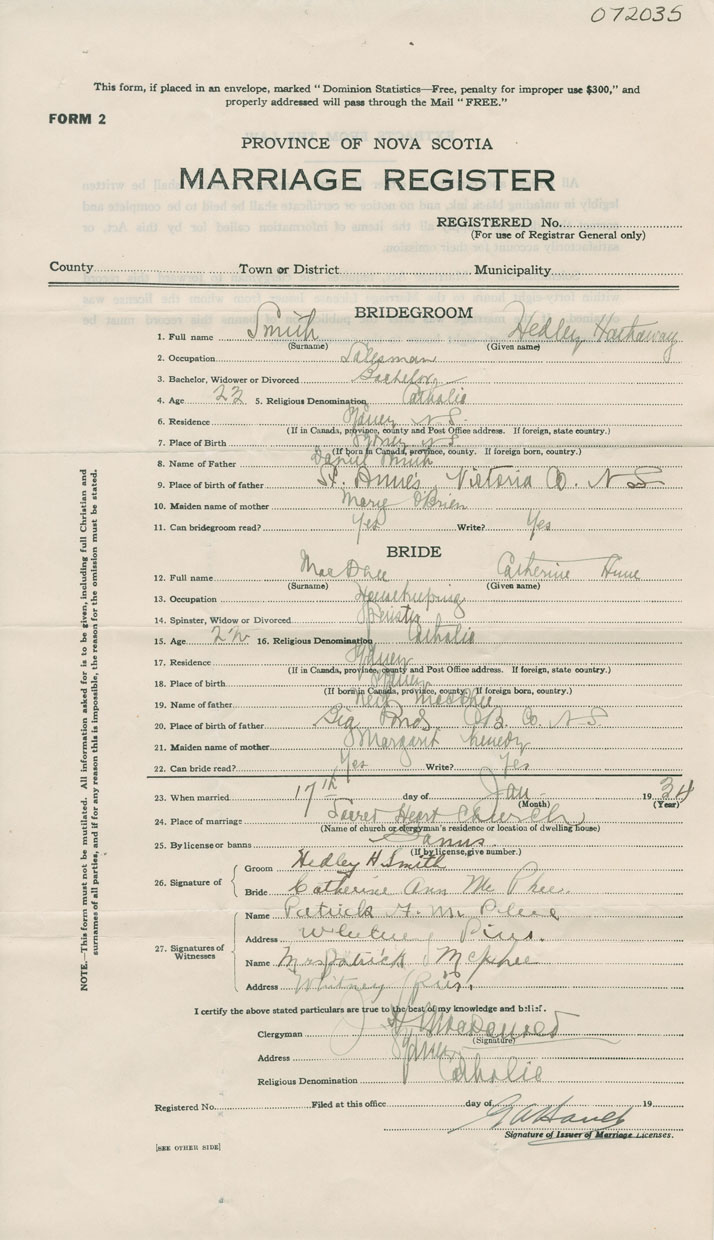 072035
This form, if placed in an envelope, marked "Dominion Statistics—Free, penalty for improper use $300," and
properly addressed will pass through the Mail "FREE."
FORM 2
PROVINCE OF NOVA SCOTIA
MARRIAGE REGISTER
REGISTERED No.
(For use of Registrar General only)
County Town or District Municipality
BRIDEGROOM
1. Full name Smith Hedley Hathaway
(Surname) (Given name)
2. Occupation Salesman
3. Bachelor, Widower or Divorced Bachelor
4. Age 22 5. Religious Denomination Catholic
6. Residence Sydney N S.
(If in Canada, province, county and Post Office address. If foreign, state country.)
7. Place of Birth Sydney N S.
(If born in Canada, province, county. If foreign born, country.)
8. Name of Father Daniel Smith
9. Place of birth of father St. Anne's Victoria Co. N S
10. Maiden name of mother Marie O'Brien
11. Can bridegroom read? Yes Write? Yes
BRIDE
12. Full name MacPhee Catherine
(Surname) (Given name)
13. Occupation Housekeeping
14. Spinster, Widow or Divorced Spinster
15. Age 22 16. Religious Denomination Catholic
17. Residence Sydney
(If in Canada, province, county and Post Office address. If foreign, state country.)
18. Place of birth Sydney
(If born in Canada, province, county. If foreign born, country.)
19. Name of father Neil MacPhee
20. Place of birth of father Big Pond C.B. Co. N S
21. Maiden name of mother Margaret Kenedy
22. Can bride read? Yes Write? Yes
23. When married 17th day of Jan 1934
(Month) (Year)
24. Place of marriage Sacret Heart Church
(Name of church or clergyman's residence or location of dwelling house)
25. By license or banns Banns
(If by license, give number.)
26. Signature of
Groom Hedley H Smith
Bride Catherine Ann Mc Phee
27. Signatures of Witnesses
Name Patrick
Address Whitney Pier.
Name Mrs Patrick Mcphee
Address Whitney Pier.
I certify the above stated particulars are true to the best of my knowledge and belief.
Clergyman
(Signature)
Address Sydney
Religious Denomination Catholic
Registered No. Filed at this office day of 19
Signature of Issuer of Marriage Licenses.
[SEE OTHER SIDE]
NOTE.—This form must not be mutilated. All information asked for is to be given, including full Christian and
surnames of all parties, and if for any reason this is impossible, the reason for the omission must be stated.